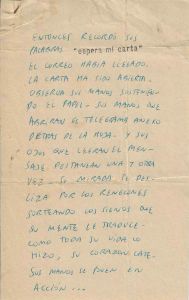 ENTONCES RECORDÓ SUS
PALABRAS "espera mi carta"
EL CORREO HABÍA LLEGADO.
LA CARTA HA SIDO ABIERTA.
OBSERVA SUS MANOS SOSTENIEN-
DO EL PAPEL - SUS MANOS QUE
ABRIRAN EL TELEGRAMA
DETRÁS DE LA HOJA - Y SUS
OJOS QUE LEERAN EL MEN-
SAJE PESTAÑEAN UNA Y OTRA
VEZ - SU MIRADA SE DES-
LIZA POR LOS RENGLONES
SORTEANDO LOS SIGNOS QUE
SU MENTE LE TRADUCE -
COMO TODA SU VIDA LO
HIZO, SU CORAZON LATE -
SUS MANOS SE PONEN EN
ACCIÓN...